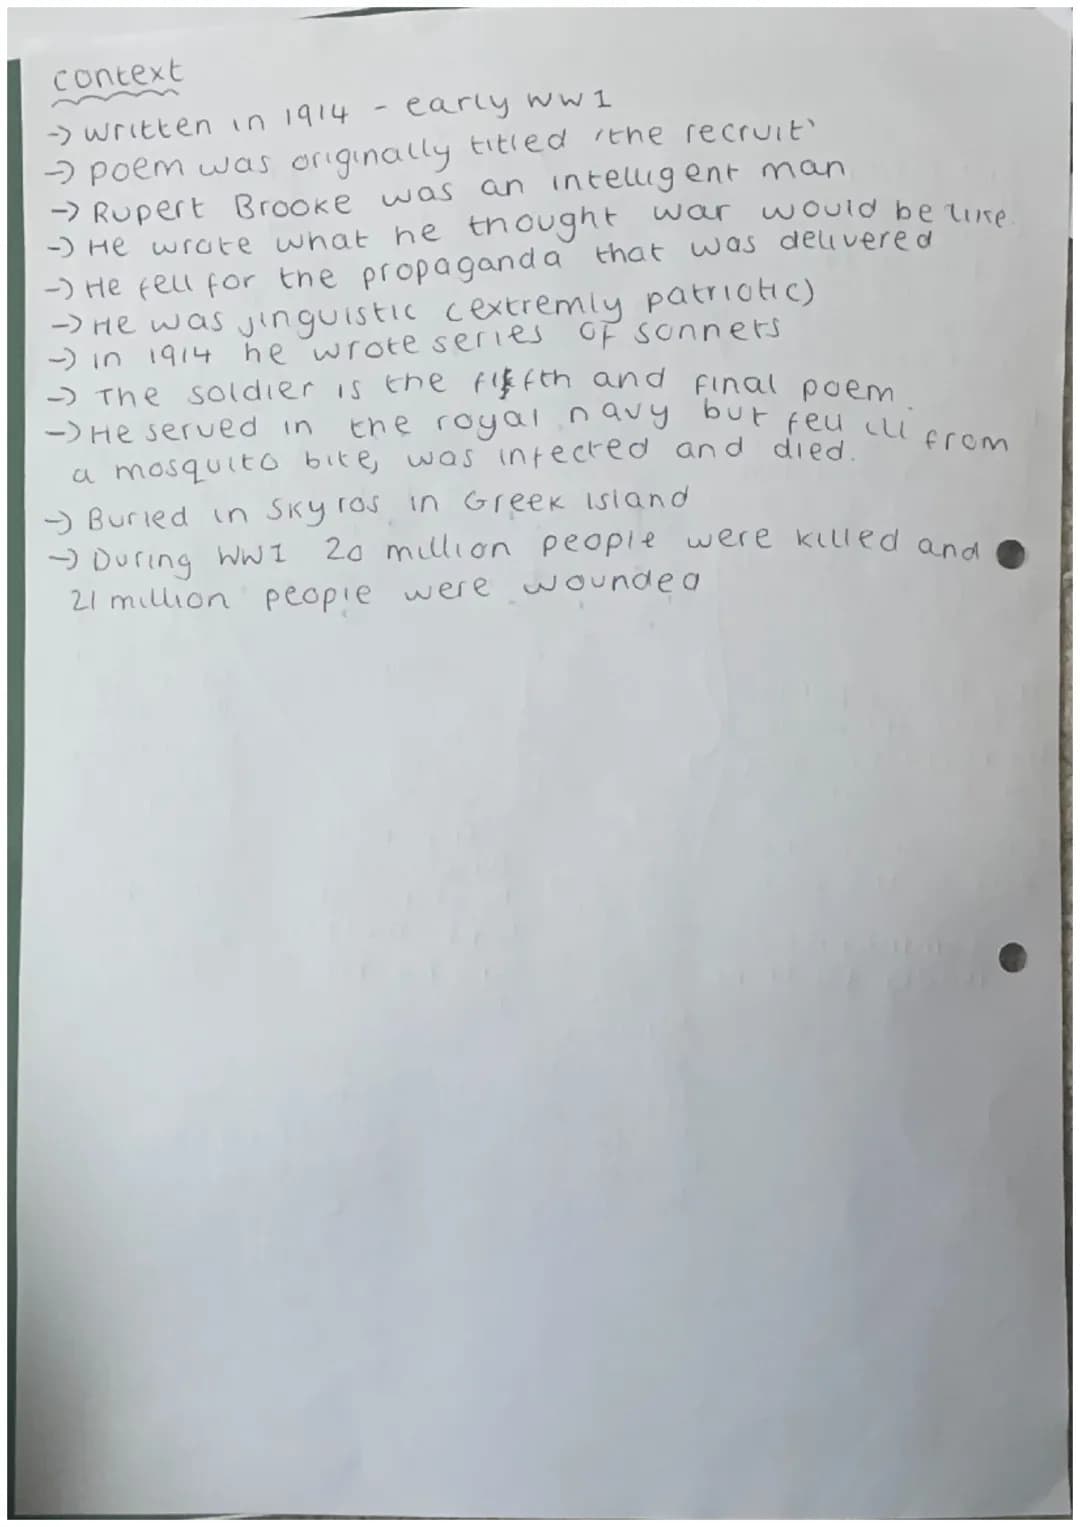 context
→ written in 1914 - early WW1
→ poem was originally titled 'the recruit'
→ Rupert Brooke was an intelligent man
→ He wrote what he thought war would be like.
→ He fell for the propaganda that was delivered
→ He was jinguistic (extremly patriotic)
→ in 1914 he wrote series of sonnets
→ The soldier is the fifth and final poem.
→ He served in the royal navy but fell ill from
a mosquito bite, was infected and died.
→ Buried in Skyros in Greek island
→ During WW1 20 million people were killed and
21 million people were wounded